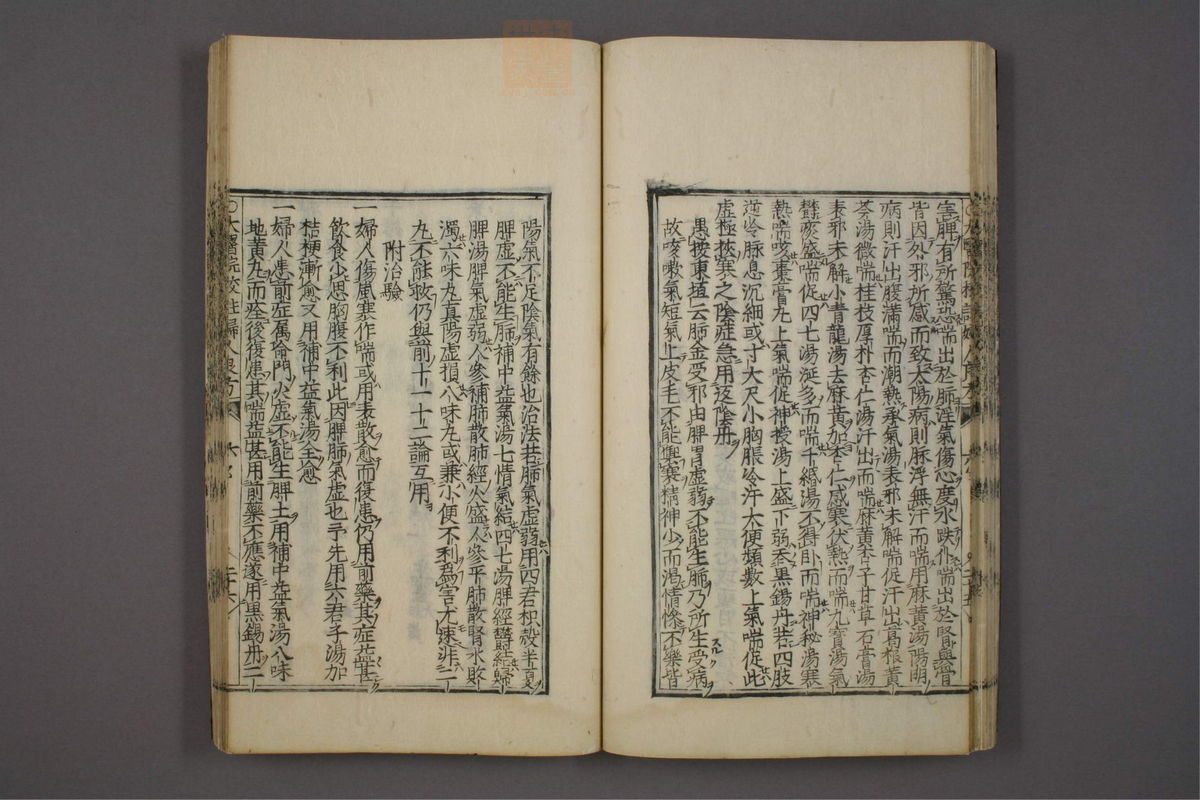 害脾有所驚恐喘出於肺淫氣傷心度水跌仆喘出於腎與骨
皆因外邪所感而致太陽病則脉浮無汗而喘用麻黄湯陽明
病則汗出腹滿喘而潮熱承氣湯表邪未解喘促汗出葛根黄
芩湯微喘桂枝厚朴杏仁湯汗出而喘麻黄杏子甘草石膏湯
表邪未解小青龍湯去麻黄加杏仁感寒伏熱而喘九寳湯氣
欝痰盛喘促四七湯涎多而喘千緡湯不得卧而喘神秘湯寒
熱喘咳棗膏丸上氣喘促神授湯上盛下弱黍黒錫丹若四肢
逆冷脉息沉細或寸大尺小胸脹冷汗大便頻數上氣喘促此
虚極挾寒之陰症急用返陰丹
愚按東垣云肺金受邪由脾胃虚弱不能生肺乃所生受病
故咳嗽氣短氣上皮毛不能禦寒精神少而渇情慘不樂皆
陽氣不足陰氣有餘也治法若肺氣虚弱用四君枳殼半夏
脾虚不能生肺補中益氣湯七情氣結四七湯脾經欝結歸
脾湯脾氣虚弱人參補肺散肺經火盛人參平肺散腎水敗
濁六味丸真陽虚損八味丸或兼小便不利爲害尤速非二
丸不能救仍與前十一十二論互用
附治驗
一婦人傷風寒作喘或用表散愈而復患仍用前藥其症益甚
飲食少思胸腹不利此因脾肺氣虚也予先用六君子湯加
桔梗漸愈又用補中益氣湯全愈
一婦人患前症属命門火虚不能生脾土用補中益氣湯八味
地黄丸而痊後復患其喘益甚用前藥不應遂用黒錫丹二
○大醫院校註婦人良方 六 二十六